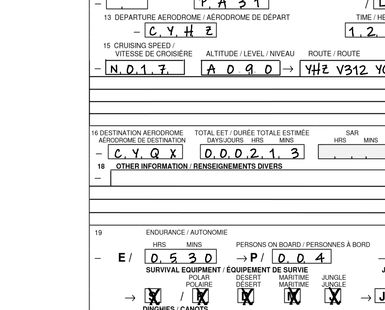 P A 3 1
13 DEPARTURE AERODROME / AÉRODROME DE DÉPART TIME / HE
– C Y H Z 1 2
15 CRUISING SPEED / VITESSE DE CROISIÈRE ALTITUDE / LEVEL / NIVEAU ROUTE / ROUTE
– N 0 1 7 A 0 9 0 → YHZ V312 YQ
16 DESTINATION AERODROME TOTAL EET / DURÉE TOTALE ESTIMÉE SAR
AÉRODROME DE DESTINATION DAYS/JOURS HRS MINS HRS MINS
– C Y Q X 0 0 0 2 1 3
18 OTHER INFORMATION / RENSEIGNEMENTS DIVERS
–
19 ENDURANCE / AUTONOMIE
HRS MINS PERSONS ON BOARD / PERSONNES À BORD
– E / 0 5 3 0 → P / 0 0 4
SURVIVAL EQUIPMENT / ÉQUIPEMENT DE SURVIE
POLAR DESERT MARITIME JUNGLE
POLAIRE DÉSERT MARITIME JUNGLE
→ / → J
DINGHIES / CANOTS